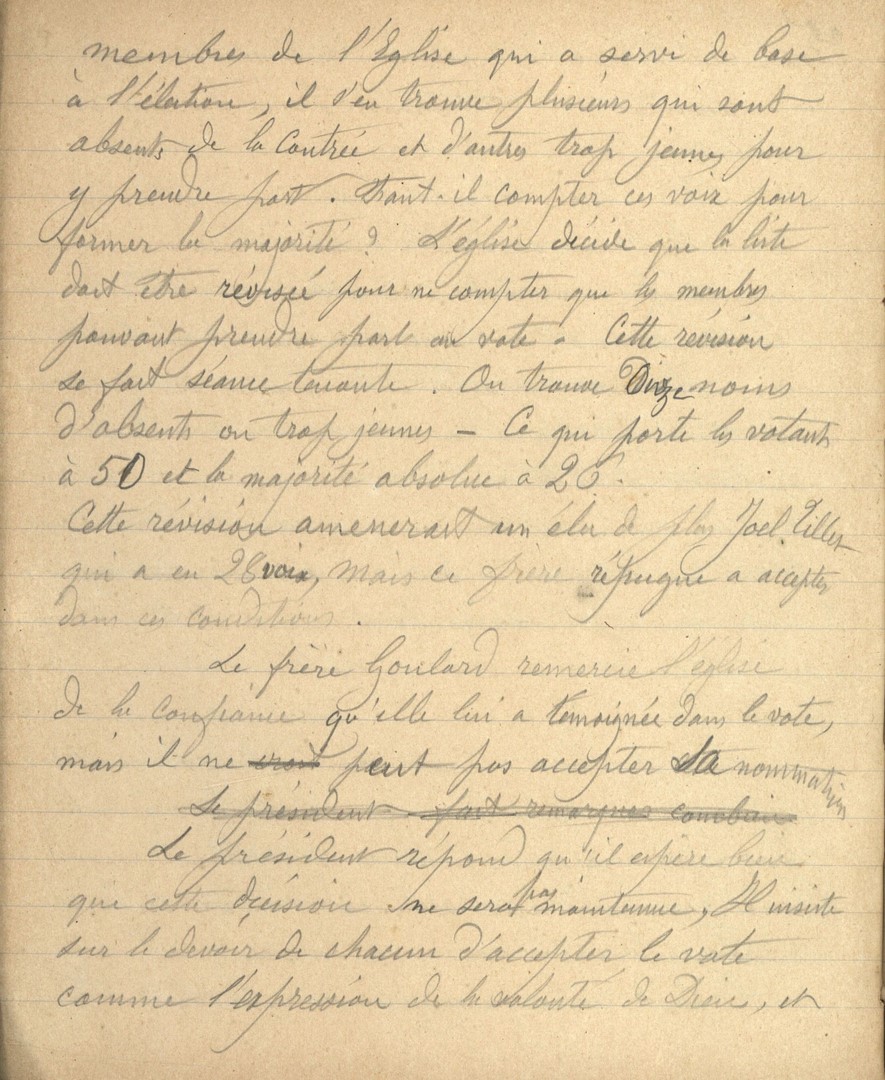 membres de l'Eglise qui a servi de base
à l'élection, il s'en trouve plusieurs qui sont
absents de la contrée et d'autres trop jeunes pour
y prendre part. Faut-il compter ces voix pour
former la majorité ? L'église décide que la liste
doit être révisée pour ne compter que les membres
pouvant prendre part au vote. Cette révision
se fait séance tenante. On trouve noms
d'absents ou trop jeunes — Ce qui porte les votants
à 50 et la majorité absolue à 26.
Cette révision amenerait un élu de plus Joel Tillet
qui a eu 28 voix, mais ce frère répugne a accepter
dans ces conditions.
Le frère Goulard remercie l'église
de la confiance qu'elle lui a témoignée dans le vote,
mais il ne croit peut pas accepter sa nomination
Le président fait remarquer combien
Le président répond qu'il espère bien
que cette décision ne sera pas maintenue, Il insiste
sur le devoir de chacun d'accepter le vote
comme l'expression de la volonté de Dieu, et